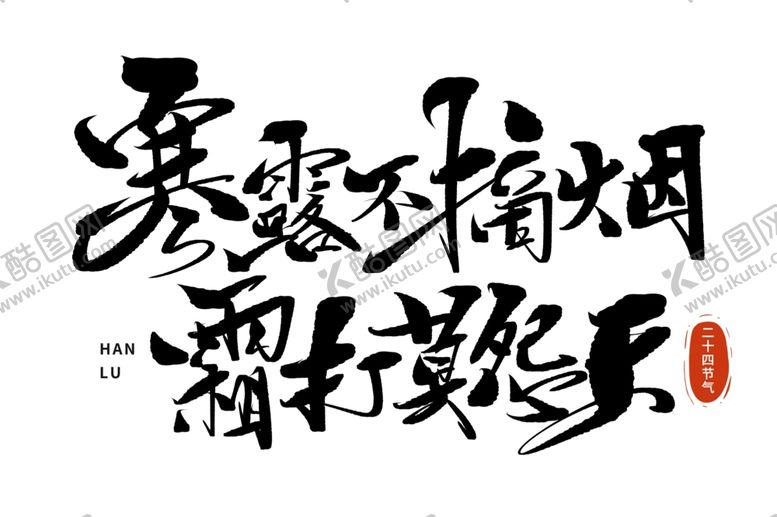 寒露不摘烟
霜打莫怨天
HAN
LU
二十四节气
酷图网
www.ikutu.com
酷图网
www.ikutu.com
酷图网
www.ikutu.com
酷图网
www.ikutu.com